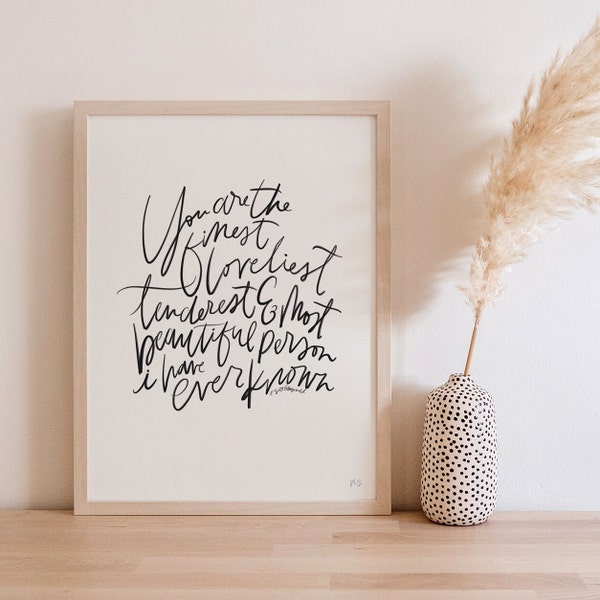 You are the
finest
loveliest
tenderest & most
beautiful person
i have
ever known